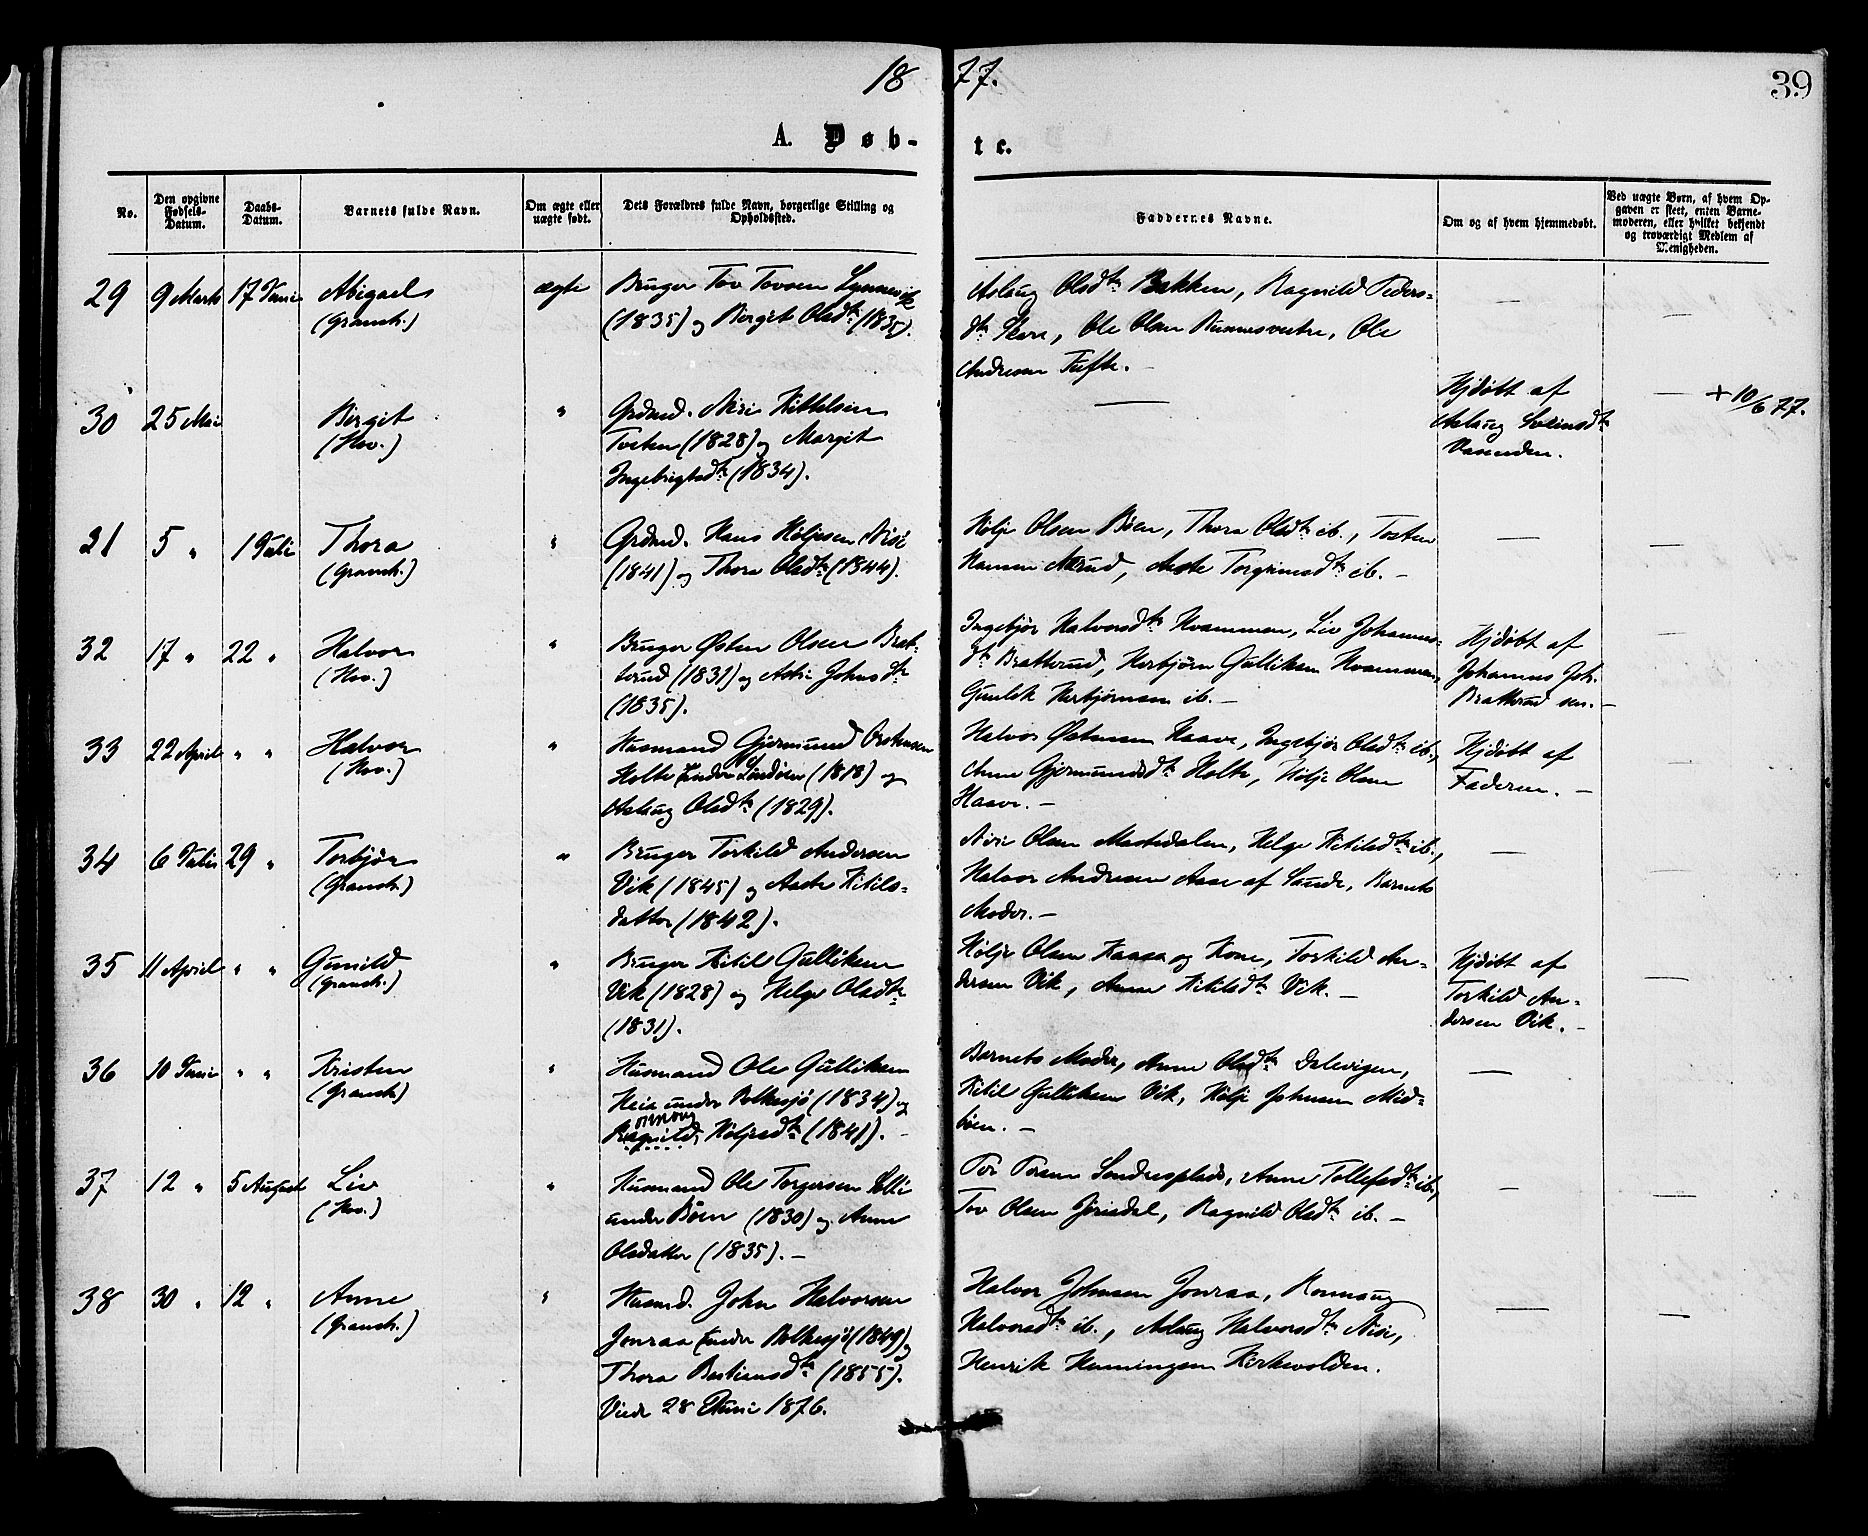 1877.
39
A. Døbte.
No.
Den opgivne Fødsels-Datum.
Daabs-Datum.
Barnets fulde Navn.
Om ægte eller uægte født.
Dets Forældres fulde Navn, borgerlige Stilling og Opholdssted.
Faddernes Navne.
Om og af hvem hjemmedøbt.
Ved uægte Børn, af hvem Opgaven er skeet, enten Barnemoderen, eller hvilket bekjendt og troværdigt Medlem af Menigheden.
29 9 Marts 17 Juni Abigael
(Gransh.)
ægte
Bruger Tov Tovsen
(1835) og Bergit Olsdtr (1835).
Aslaug Olsdtr Bakken, Ragnild Peders-
dtr Skore, Ole Olsen , Ole
Andersen Tufte. —
30 25 Mai Birgit
(Hov.)
"
Grdmd. Niri Kittelsen
Tosten (1828) og Margit
Ingebrigtsdtr (1834).
—
Hjdöbt af
Aslaug Sveinsdtr
Vasenden.
+ 10/6 77.
21 5 " 1 Juli Thora
(Gransh.)
"
Grdmd. Hans Höljesen Nisi
(1841) og Thora Olsdtr (1844).
Hölje Olsen Böen, Thora Olsdtr ib., Tosten
Hansen , Aaste Torgrimsdtr ib. —
32 17 " 22 " Halvor
(Hov.)
"
Bruger Østen Olsen Brat-
terud (1831) og Astri Johnsdtr
(1835).
Ingebjör Halvorsdtr Kvammen, Liv Johannes-
dtr Bratterud, Herbjörn Gulliksen Kvammen,
Gunlek Herbjörnsen ib. —
Hjdöbt af
Johannes Joh.
Bratterud sen. —
33 22 April " " Halvor
(Hov.)
"
Husmand Gjermund Orstensen
Holte under (1818) og
Aslaug Olsdtr (1829).
Halvor Østensen Haave, Ingebjör Olsdtr ib.,
Anne Gjermundsdtr Holte, Hölje Olsen
Haave. —
Hjdöbt af
Faderen. —
34 6 Juli 29 " Torbjör
(Gransh.)
"
Bruger Torkild Andersen
Vik (1845) og Aaste Kitils-
datter (1842).
Niri Olsen Mastedalen, Helge Kitilsdtr ib.,
Halvor Andersen Aase af Sande, Barnets
Moder. —
35 11 April " " Gunild
(Gransh.)
"
Bruger Kitil Gulliksen
Vik (1828) og Helge Olsdtr
(1831).
Hölje Olsen Haasa og Kone, Torkild An-
dersen Vik, Anne Kitilsdtr Vik. —
Hjdöbt af
Torkild An-
dersen Vik. —
36 10 Juni " " Kristen
(Gransh.)
"
Husmand Ole Gulliksen
Heia under Bolkesjö (1834) og
Ragnild Höljesdtr (1841). —
Barnets Moder, Anne Olsdtr Dalevigen,
Kitil Gulliksen Vik, Hölje Johnsen Mid-
böen. —
37 12 " 5 August Liv
(Hov.)
"
Husmand Ole Torgersen
under Böen (1830) og Anne
Olsdatter (1835). —
Tor Torsen Söndresplads, Anne Tollefsdtr ib.,
Tov Olsen Jörisdal, Ragnild Olsdtr ib. —
38 30 " 12 " Anne
(Gransh.)
"
Husmd. John Halvorsen
Jonraa under Bolkesjö (1849) og
Thora Bastiansdtr (1855).
Viede 28 Juni 1876.
Halvor Johnsen Jonraa, Ronnaug
Halvorsdtr ib., Aslaug Halvorsdtr Nisi,
Henrik Henningsen Kirkevolden.